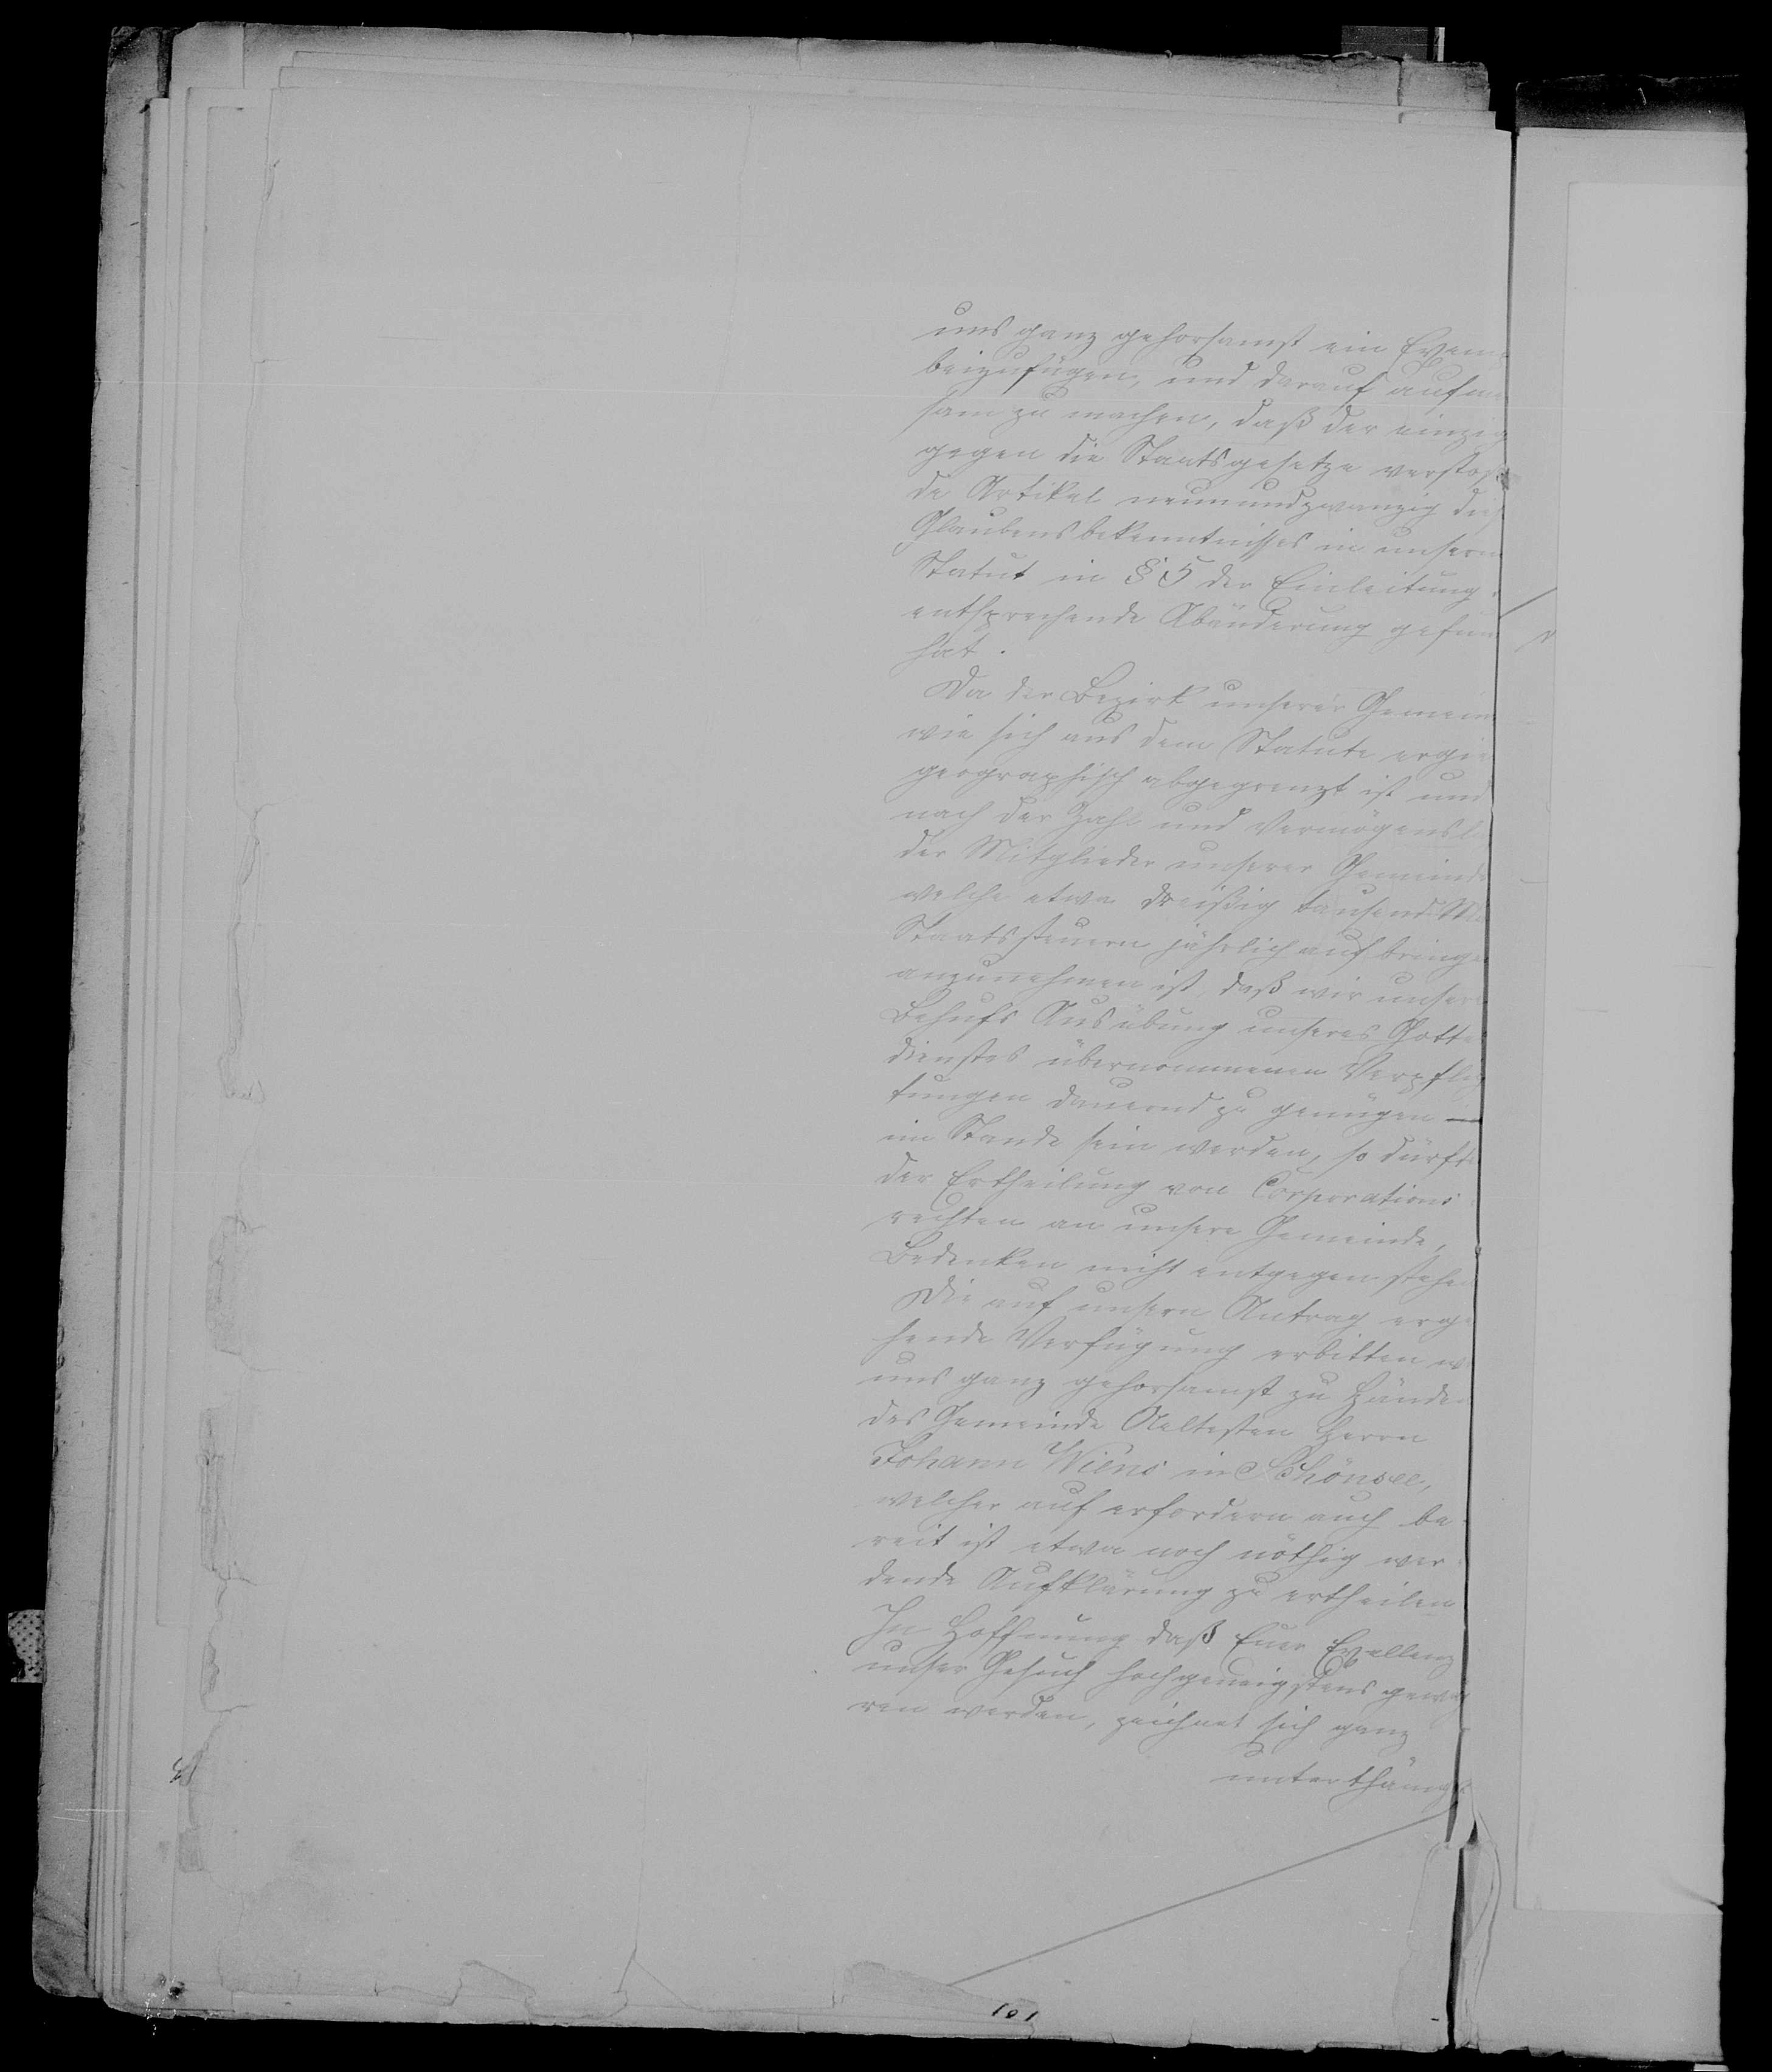 uns ganz gehorsamst ein Exem
beizufügen, und darauf aufme
sam zu machen, daß der einzig
gegen die Staatsgesetze verstoß
de Artikel neunundzwanzig dies
Glaubensbekenntnisses in unserm
Statut in § 5 der Einleitung
entsprechende Abänderung gefun
hat.
Da der Bezirk unserer Gemein
wie sich aus dem Statute ergie
geographisch abgegrenzt ist und
nach der Zahl und Vermögensl
der Mitglieder unserer Gemeinde
welche etwa dreißig tausend Ma
Staatssteuern jährlich aufbringe
anzunehmen ist, daß wir unsere
Behufs Ausübung unseres Gotte
dienstes übernommenen Verpflich
tungen dauernd zu genügen —
im Stande sein werden, so dürfte
der Ertheilung von Corporations
rechten an unsere Gemeinde,
Bedenken nicht entgegen stehen
Die auf unsern Antrag erge
hende Verfügung erbitten w
uns ganz gehorsamst zu Händen
des Gemeinde Aeltesten Herrn
Johann Wiens in Schönsee,
welcher auf erfordern auch be-
reit ist etwa noch nöthig wer-
dende Aufklärung zu ertheilen
In Hoffnung daß Euer Exellenz
unser Gesuch hochgeneigtens gewäh
ren werden, zeichnet sich ganz
unterthänigst
101